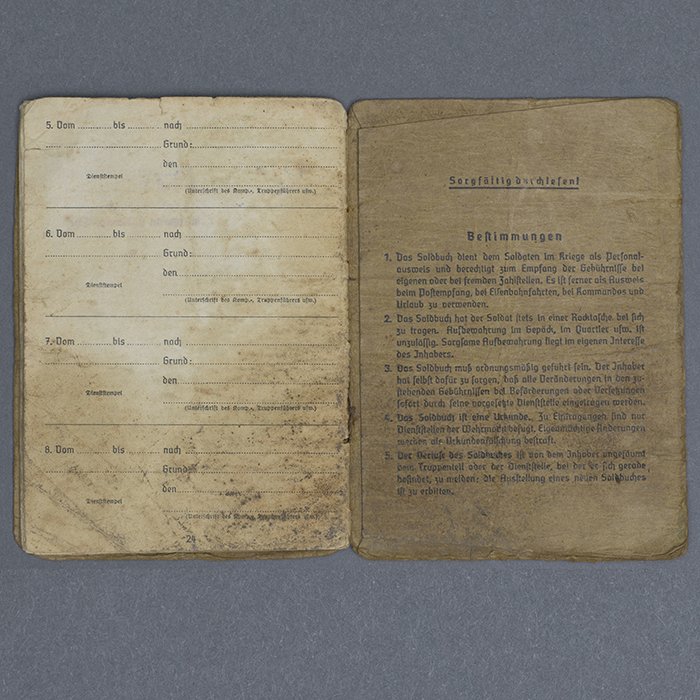 5. Vom ........... bis ........... nach ...........
Grund: ...........
den ...........
Dienststempel
(Unterschrift des Komp.-, Truppenführers usw.)
6. Vom ........... bis ........... nach ...........
Grund: ...........
den ...........
Dienststempel
(Unterschrift des Komp.-, Truppenführers usw.)
7. Vom ........... bis ........... nach ...........
Grund: ...........
den ...........
Dienststempel
(Unterschrift des Komp.-, Truppenführers usw.)
8. Vom ........... bis ........... nach ...........
Grund: ...........
den ...........
Dienststempel
(Unterschrift des Komp.-, Truppenführers usw.)
24
Sorgfältig durchlesen!
Bestimmungen
1. Das Soldbuch dient dem Soldaten im Kriege als Personal-
ausweis und berechtigt zum Empfang der Gebührnisse bei
eigenen oder bei fremden Zahlstellen. Es ist ferner als Ausweis
beim Postempfang, bei Eisenbahnfahrten, bei Kommandos und
Urlaub zu verwenden.
2. Das Soldbuch hat der Soldat stets in einer Rocktasche bei sich
zu tragen. Aufbewahrung im Gepäck, im Quartier usw. ist
unzulässig. Sorgsame Aufbewahrung liegt im eigenen Interesse
des Inhabers.
3. Das Soldbuch muß ordnungsmäßig geführt sein. Der Inhaber
hat selbst dafür zu sorgen, daß alle Veränderungen in den zu-
stehenden Gebührnissen bei Beförderungen oder Versetzungen
sofort durch seine vorgesetzte Dienststelle eingetragen werden.
4. Das Soldbuch ist eine Urkunde. Zu Eintragungen sind nur
Dienststellen der Wehrmacht befugt. Eigenmächtige Änderungen
werden als Urkundenfälschung bestraft.
5. Der Verlust des Soldbuches ist von dem Inhaber ungesäumt
dem Truppenteil oder der Dienststelle, bei der er sich gerade
befindet, zu melden; die Ausstellung eines neuen Soldbuches
ist zu erbitten.